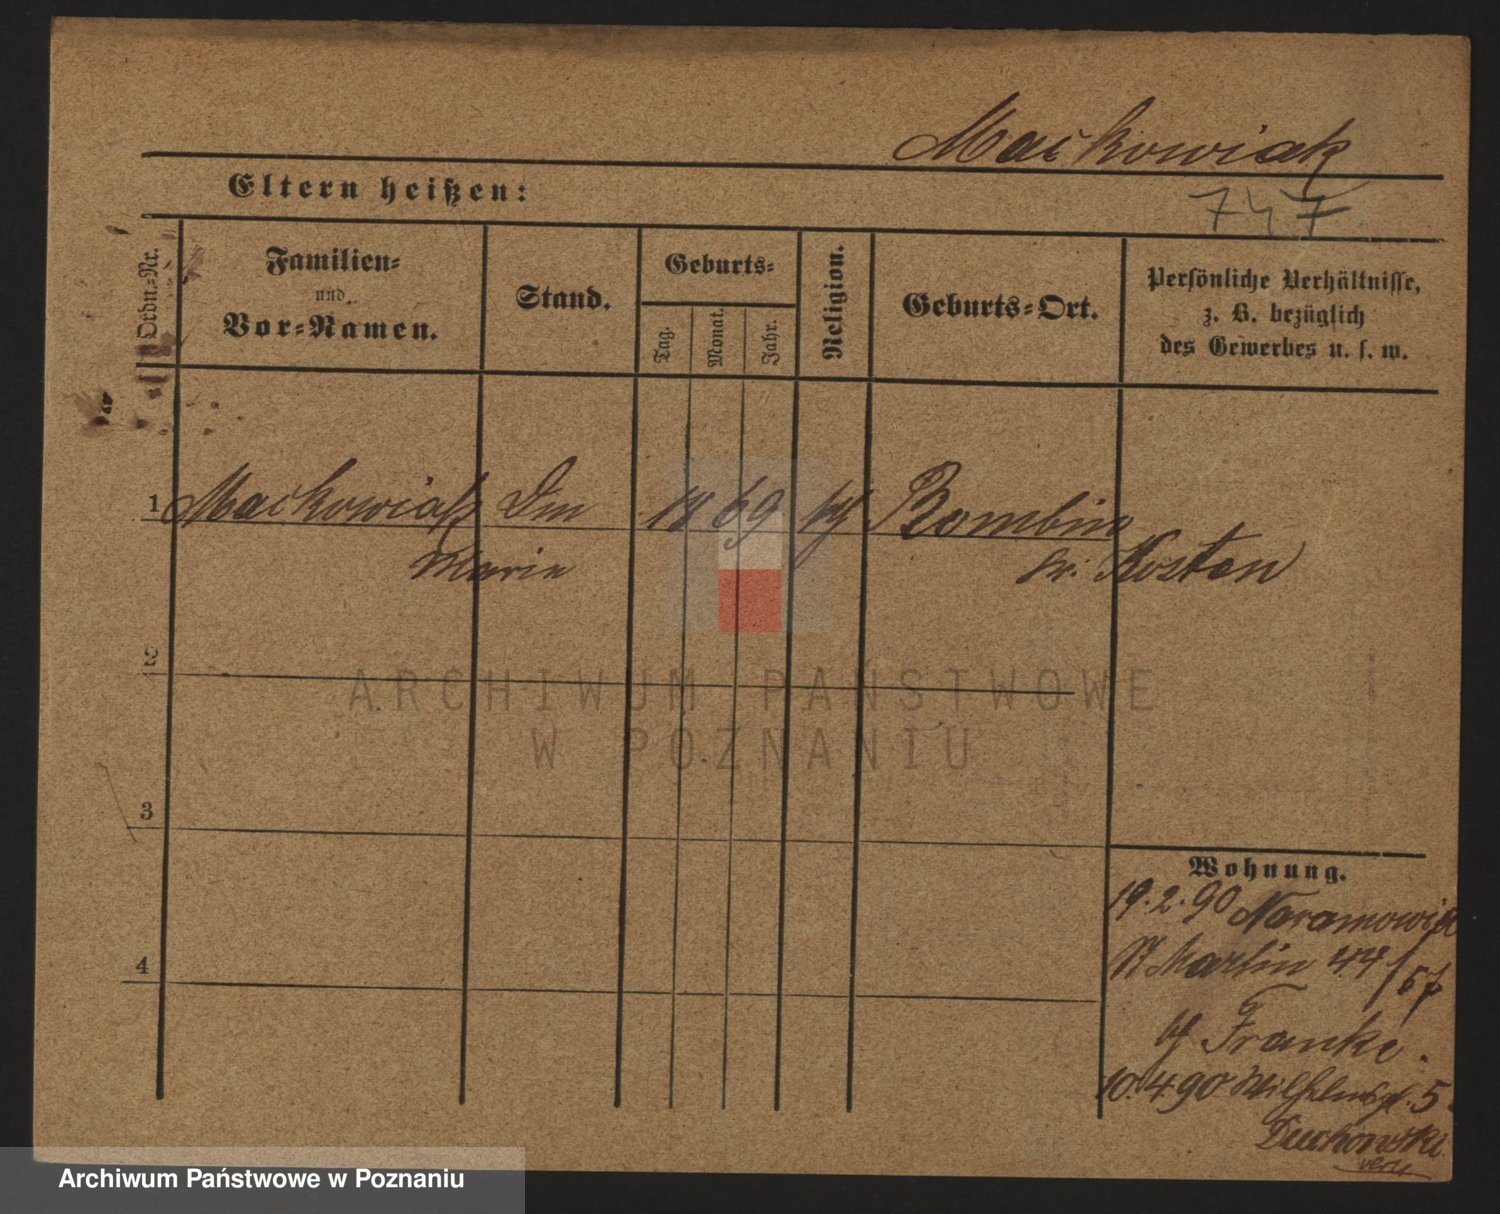 Mackowiak
747
Eltern heißen:
Ordn.-Nr.
Familien-
und
Vor-Namen.
Stand.
Geburts-
Tag.
Monat.
Jahr.
Religion.
Geburts-Ort.
Persönliche Verhältnisse,
z. B. bezüglich
des Gewerbes u. s. w.
1 Mackowiak 18 69 Bombin
Marie Kr. Kosten
2
3
4
ARCHIWUM PAŃSTWOWE
W POZNANIU
Wohnung.
19.2.90 Naramowice
St Martin 44/67
Franke.
10.4.90 Wilhelmspl. 5
Duchowski
Archiwum Państwowe w Poznaniu